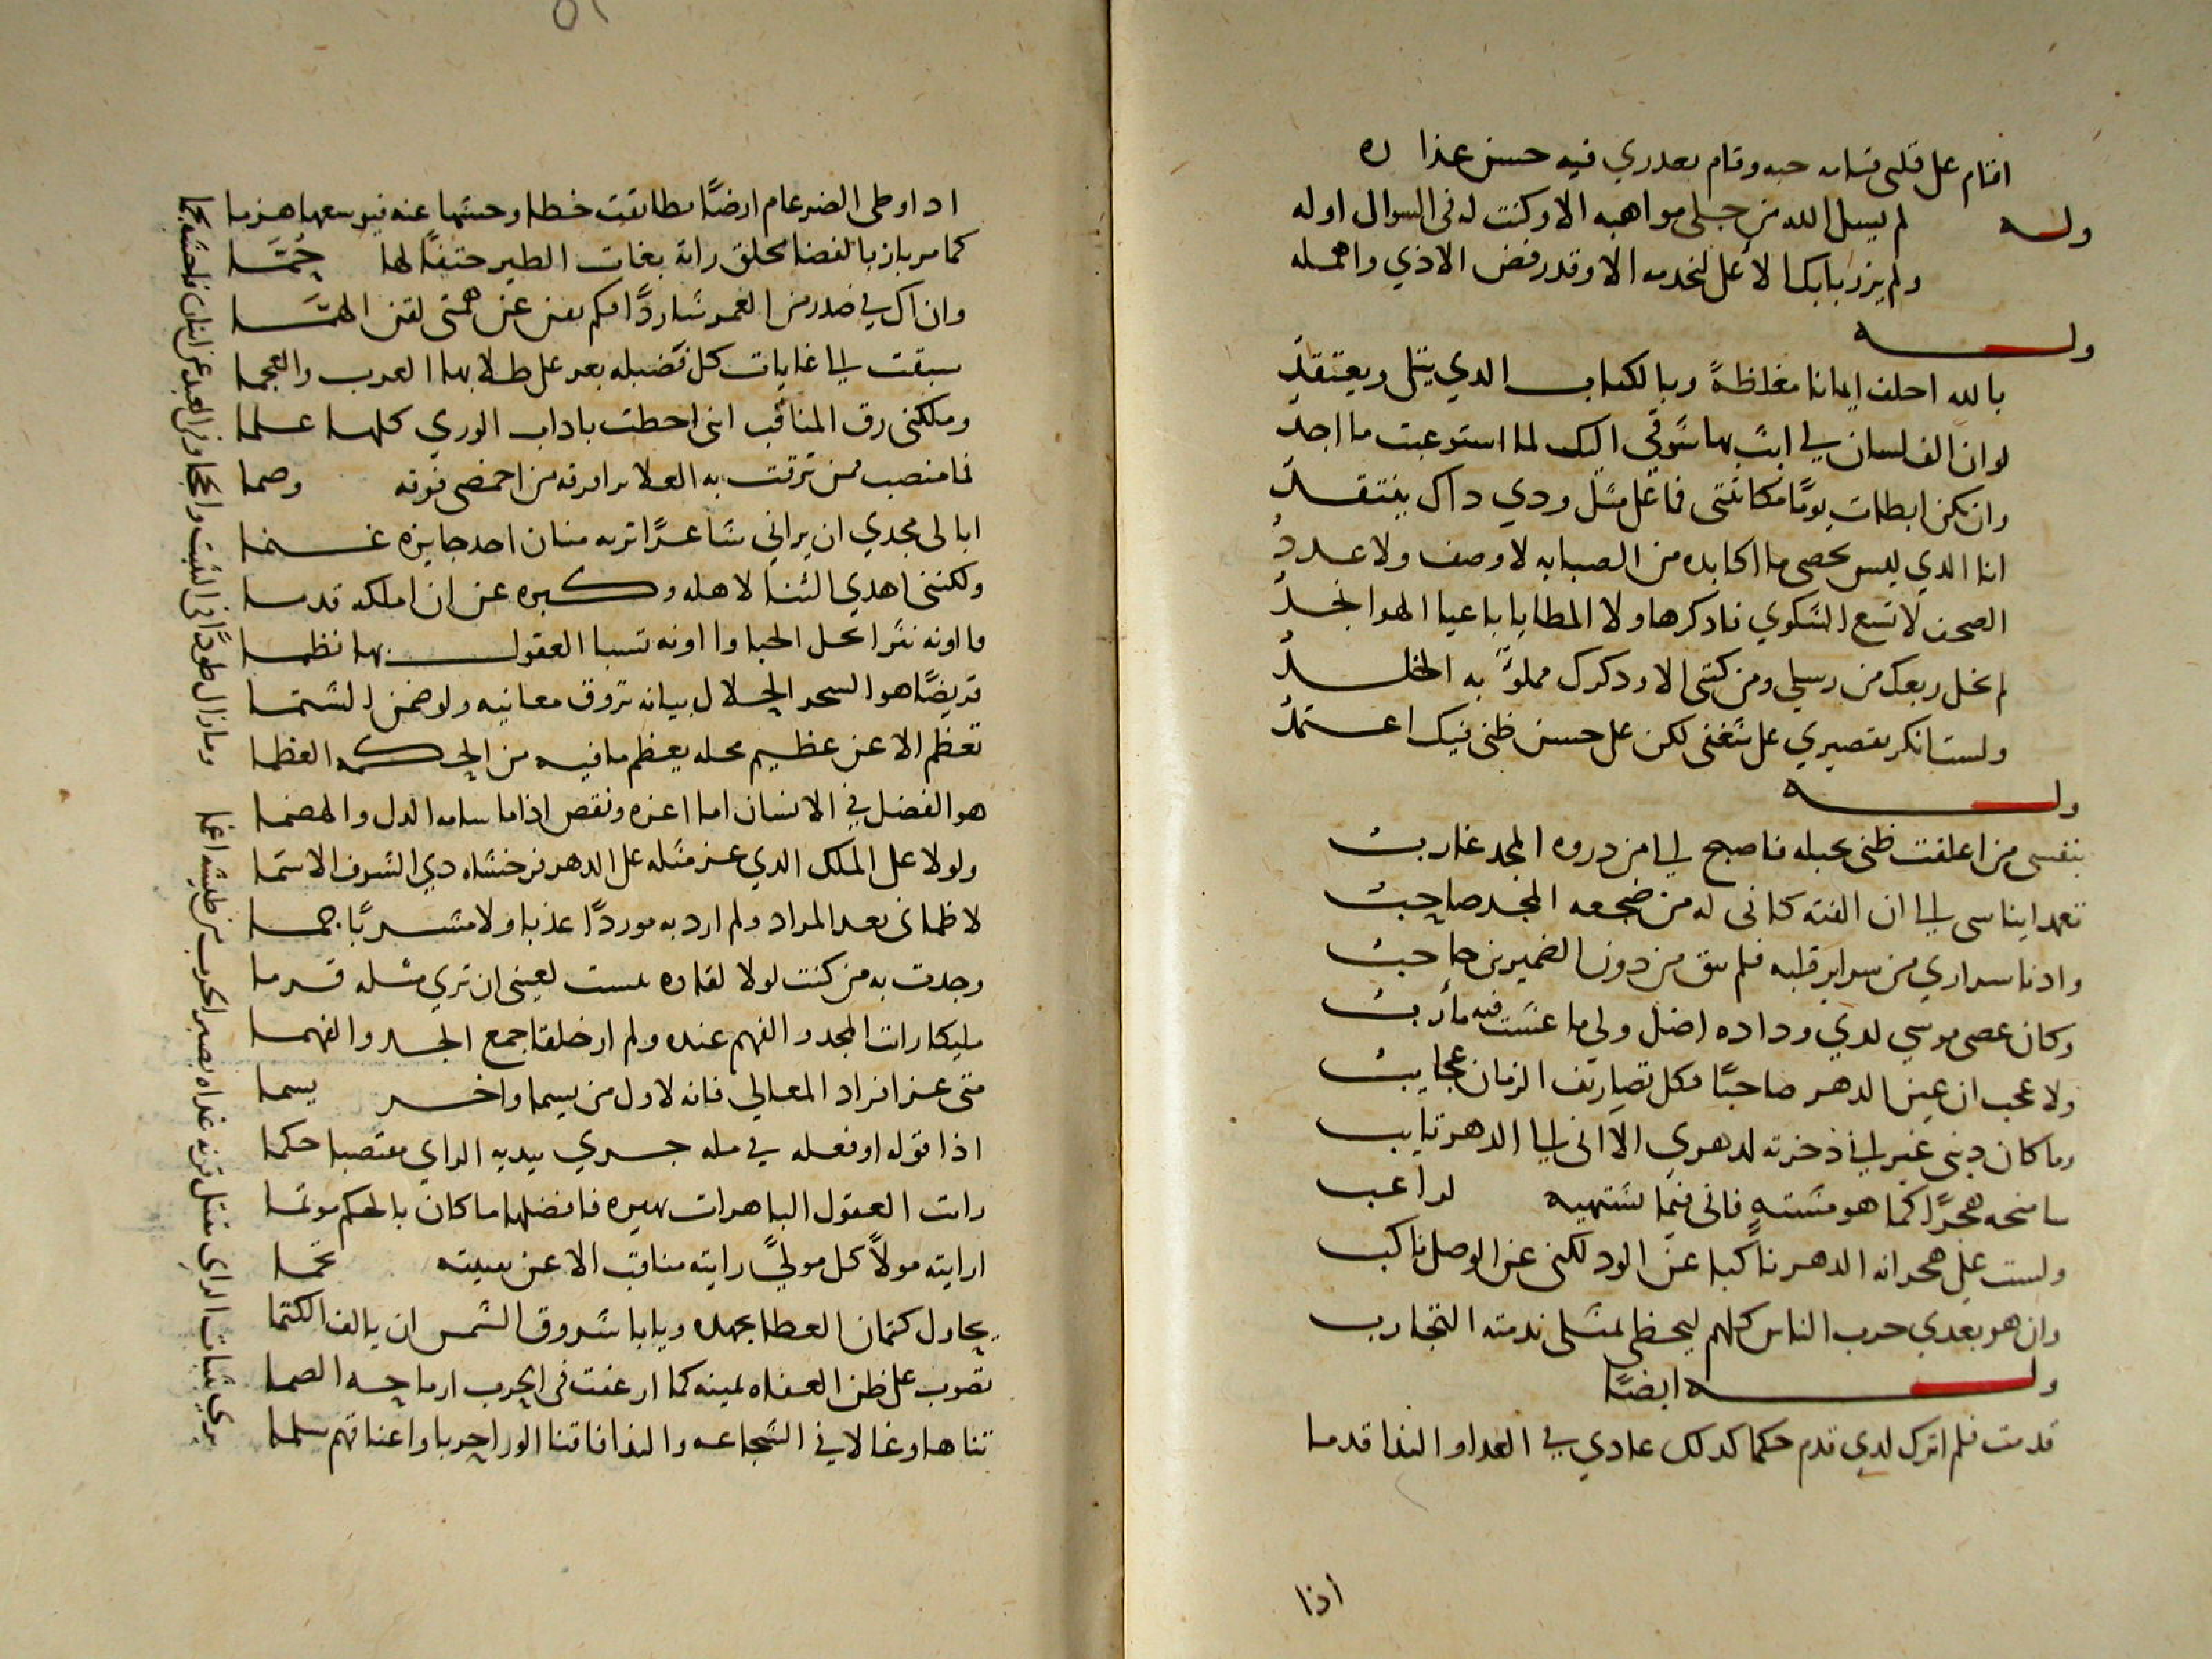 اقام على قلبى قيامه حبه وقام بعدري فيه حسن عذاره
وله لم يسل الله من جلى مواهبه الا وكنت له فى السوال اوله
ولم يزر بابك الاعلى لخدمه الا وقد رفض الاذي واهمله
وله
بالله احلف ايمانا مغلظةً وبالكتاب الدي يتلى ويعتقدُ
لو ان الف لسان لي ابثّ بها شوقي اليك لما استوعبت ما اجدُ
وان يكن ابطات يومًا مكاتبتى فما على مثل ودي داك ينتقدُ
انا الدي ليس يحصى ما اكابده من الصبابه لا وصف ولا عددُ
الصحف لا تسع الشكوي فادكرها ولا المطايا باعيا الهوا تخدُ
لم يخل ربعك من رسلي ومن كتبى الا ودكرك مملوّ به الخلدُ
ولست انكر تقصيري على شغفى لكن على حسن ظنى فيك اعتمدُ
وله
بنفسى من اعلقت ظنى بحبله فاصبح لي من دروه المجد غاربُ
تعمد ايناسى الى ان الفته كانى له من ضجعه المجد صاحبُ
وادنا سراري من سراير قلبه فلم يبق من دون الضميرين حاجبُ
وكان عصى موسي لدي وداده اضل ولي ما عشت فيه مأربُ
ولا عجب ان عين الدهر صاحبًا فكل تصاريف الزمان عجايبُ
وما كان دبنى غير اني ذخرته لدهري الا انى الى الدهر تايب
سامنحه هجرًا كما هو مشتهٍ فانى فيما يشتهيه لراغب
ولست على هجرانه الدهر ناكبا عن الود لكنى عن الوصل ناكب
وان هو بعدي جرب الناس كلهم ليحظى بمثلى ندمته التجارب
وله ايضًا
قدمت فلم اترك لدي قدم حكما كدلك عادي في العدا والندا قدما
اذا
ادا وطى الضرغام ارضًا تطابقت خطا وحشها عنه فيوسعها هزما
كما مر باز بالفضا محلق راته بغات الطير حتفًا لها حُمَّا
وان اك في صدر من العمر شاردًا فكم يفن عن همتى لفن الهمَّا
سبقت الى غايات كل فضيله يعز على طلابها العرب والعجما
وملكنى رق المناقب اننى احطت باداب الوري كلها علما
فما منصب ممن ترقت به العلا يرا فرقه من اخمصى فوقه وصما
ابا لى مجدي ان يراني شاعرًا تربه منان احد جايزه غنما
ولكننى اهدي الثنا لاهله وكبره عن ان املكه قدما
فاونه نثرا يحل الحبا واونه تسبا العقول بها نظما
قريضًا هو السحر الحلال بيانه تروق معانيه ولو ضمن الشتما
تعظم الا عن عظيم محله يعظم ما فيه من الحكمه العظما
هو الفضل في الانسان اما اعزه ونقص اذا ما سامه الدل والهضما
ولولا على الملك الدي عز مثله على الدهر نرخشاه دي الشرف الاسما
لاظمانى بعد المراد ولم ارد به موردًا عذبا ولا مشربًا جما
وجدت به من كنت لولا لقاوه يئست لعينى ان تري مثله قرما
مليكا رات المجد والفهم عنده ولم ار خلقا جمع الجد والفهما
متى عز افراد المعالي فانه لاول من يسما واخر يسما
اذا قوله او فعله في مله جري بيديه الراي مقتصبا حكما
رات العقول الباهرات بهيره فافضلها ما كان بالحكم موتما
ارايته مولاً كل موليً رايته مناقب الا عن نميته تحما
يحاول كتمان العطا بجهده ويابا شروق الشمس ان يالف الكتما
تصوب على ظن العفاه يمينه كما ارعفت فى الحرب ارماحه الصما
تناها وغالا في الشجاعه والندا فاقنا الورا حربا واعناقهم سلما
يري بثبات الراي مقتل قرنه عداه بصير الحرب من طيشه اعما
وما زال طودًا فى الثبت والحجا وفى العبد عن اتيان فاحشه نجما